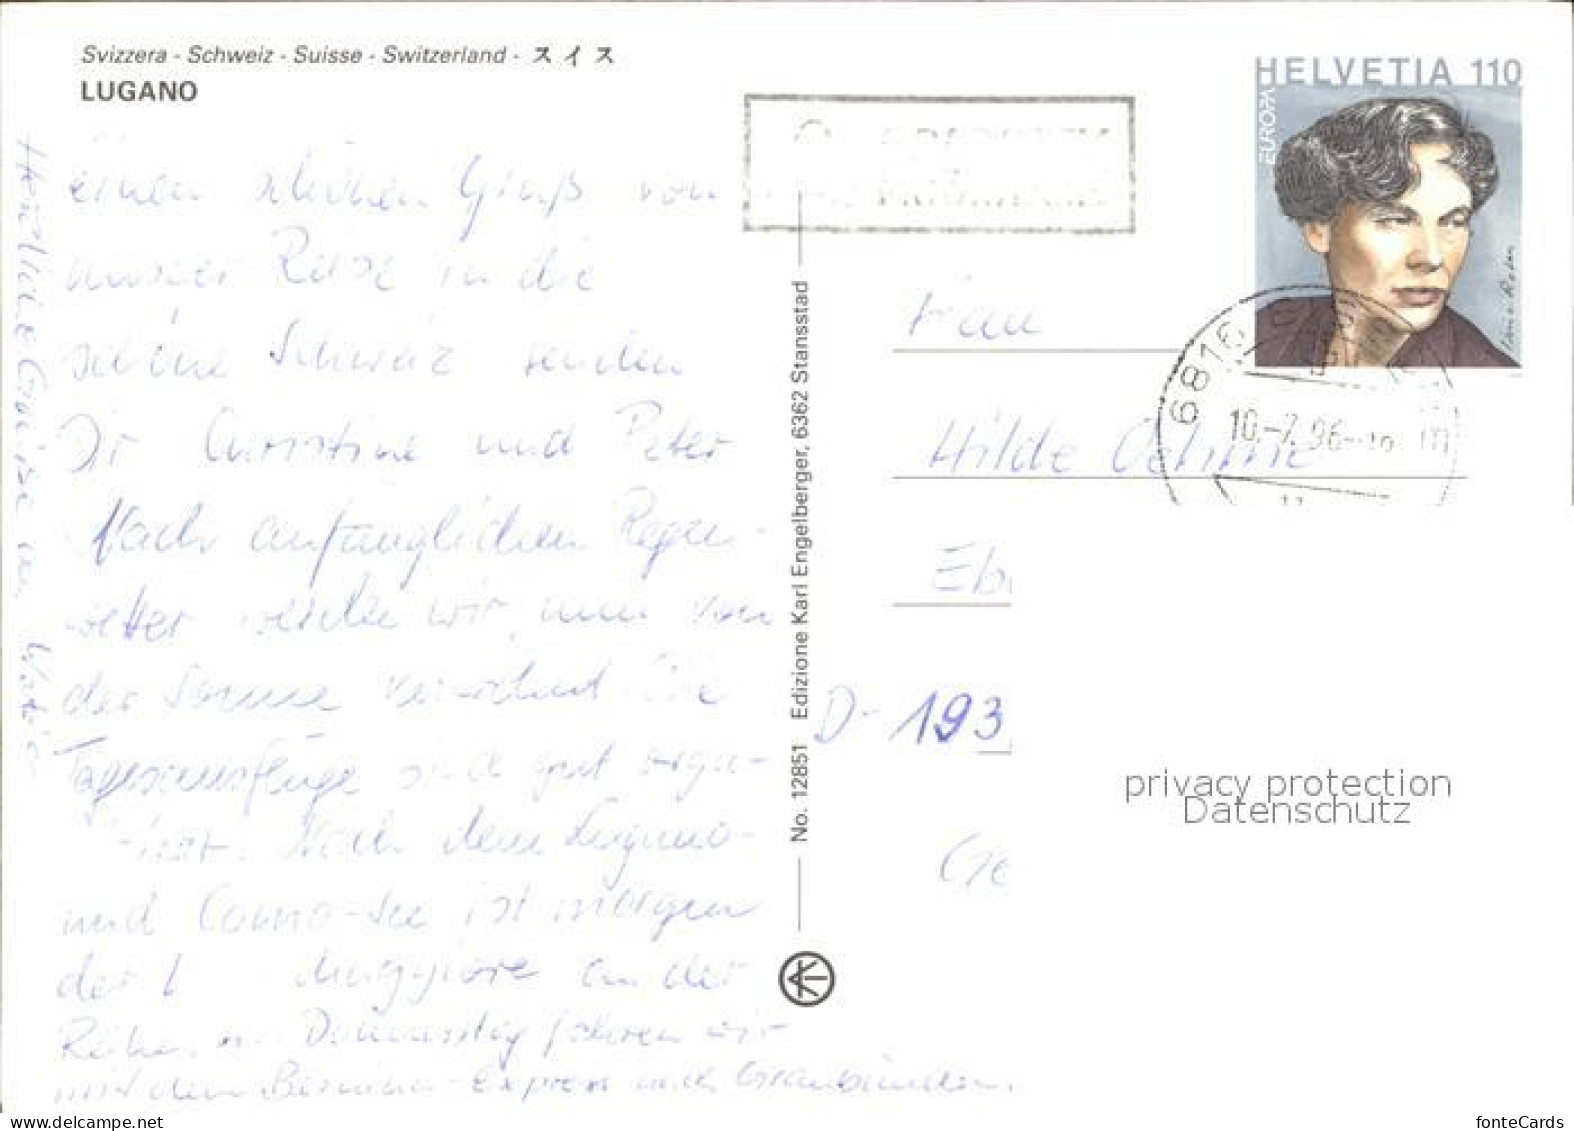 Svizzera - Schweiz - Suisse - Switzerland - スイス
LUGANO
einen schönen Gruß von
unserer Reise in die
schöne Schweiz senden
Dir Christine und Peter
Nach anfänglichen Regen-
wetter werden wir nun von
der Sonne verwöhnt. Die
Tagesausflüge sind gut orga-
Nach dem Lugano-
und Como-See ist morgen
der L Maggiore an der
Reihe. am Donnerstag fahren wir
mit dem Bernina-Express nach Graubünden.
Herzliche Grüsse an
No. 12851 Edizione Karl Engelberger, 6362 Stansstad
HELVETIA 110
EUROPA
6816
10.-7.96
Frau
Hilde Oehme
Eb
D-193
Ge
privacy protection
Datenschutz
www.delcampe.net
fonteCards